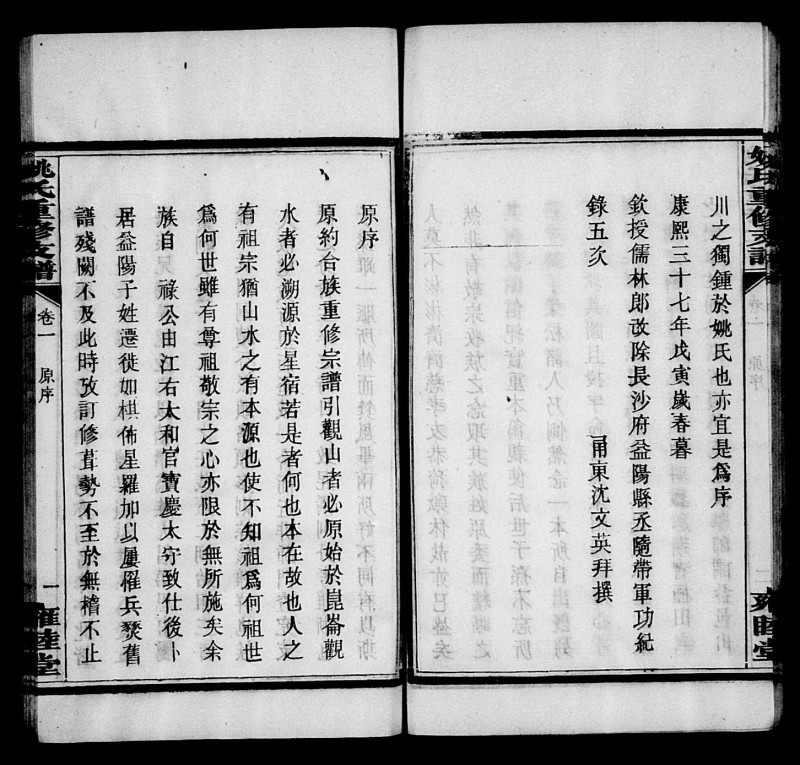 姚氏重修支譜
卷一
原序
二
雍睦堂
川之獨鍾於姚氏也亦宜是爲序
康熙三十七年戊寅歲春暮
欽授儒林郎改除長沙府益陽縣丞隨帶軍功紀
錄五次
甬東沈文英拜撰
原序
原約合族重修宗譜引觀山者必原始於崑崙觀
水者必溯源於星宿若是者何也本在故也人之
有祖宗猶山水之有本源也使不知祖爲何祖世
爲何世雖有尊祖敬宗之心亦限於無所施矣余
族自 祿公由江右太和官寶慶太守致仕後卜
居益陽子姓遷徙如棋佈星羅加以屢罹兵燹舊
譜殘闕不及此時攷訂修葺勢不至於無稽不止
姚氏重修支譜
卷一
原序
一
雍睦堂